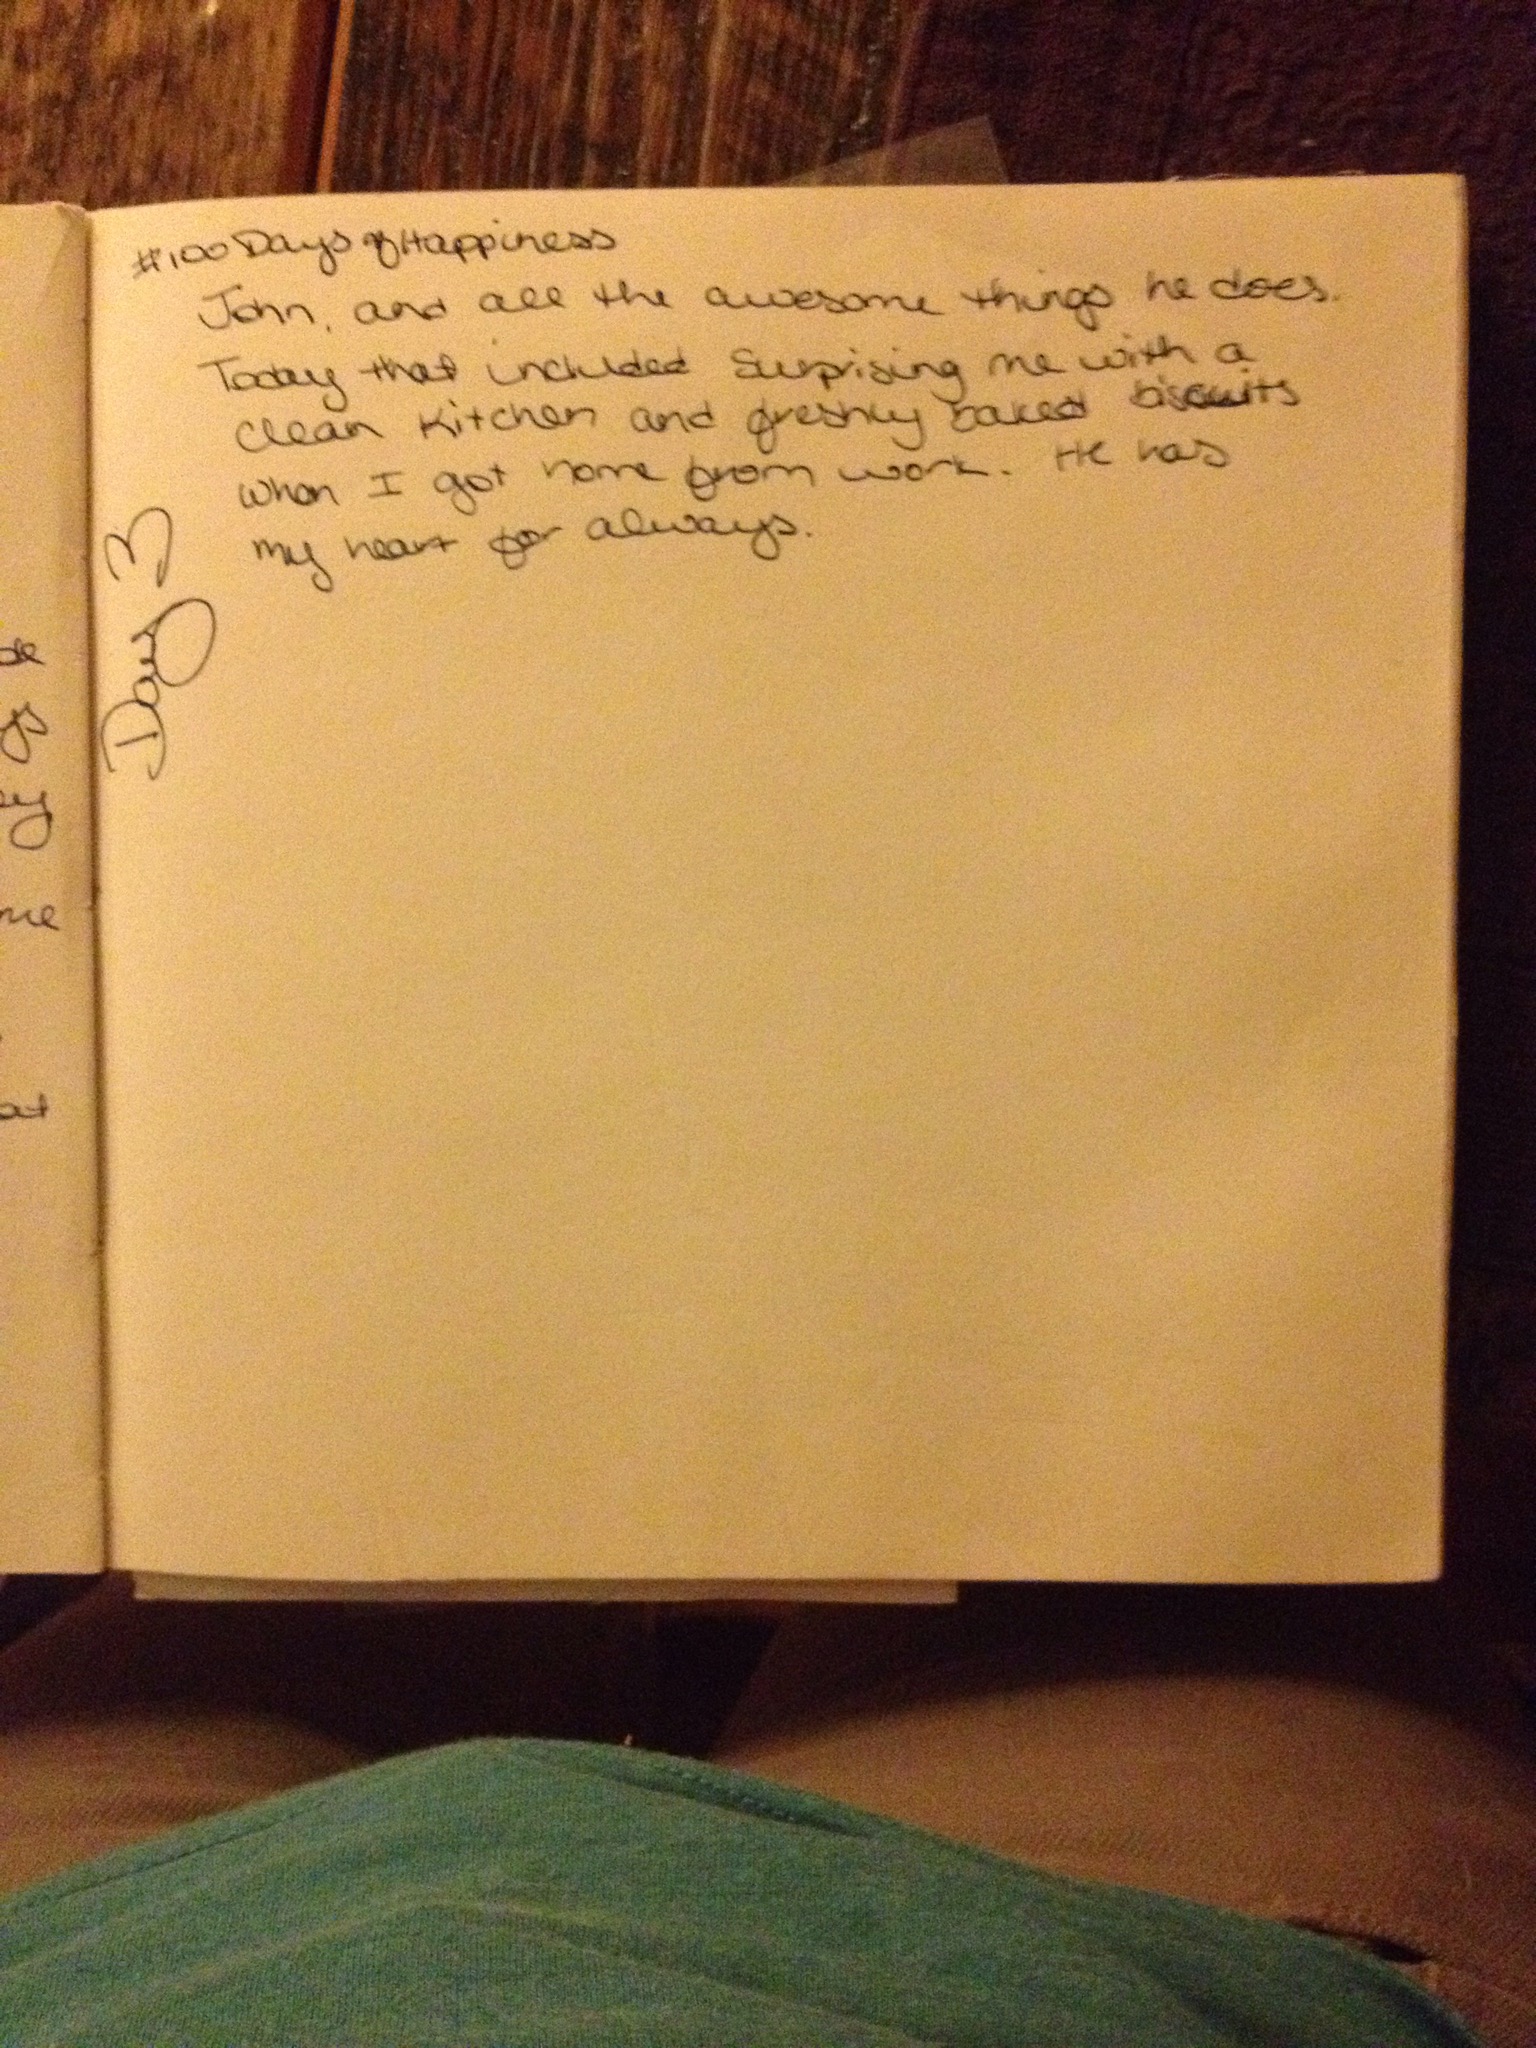 #100DaysofHappiness
John, and all the awesome things he does.
Today that included surprising me with a
clean kitchen and freshly baked biscuits
when I got home from work. He has
my heart for always.
Day 3